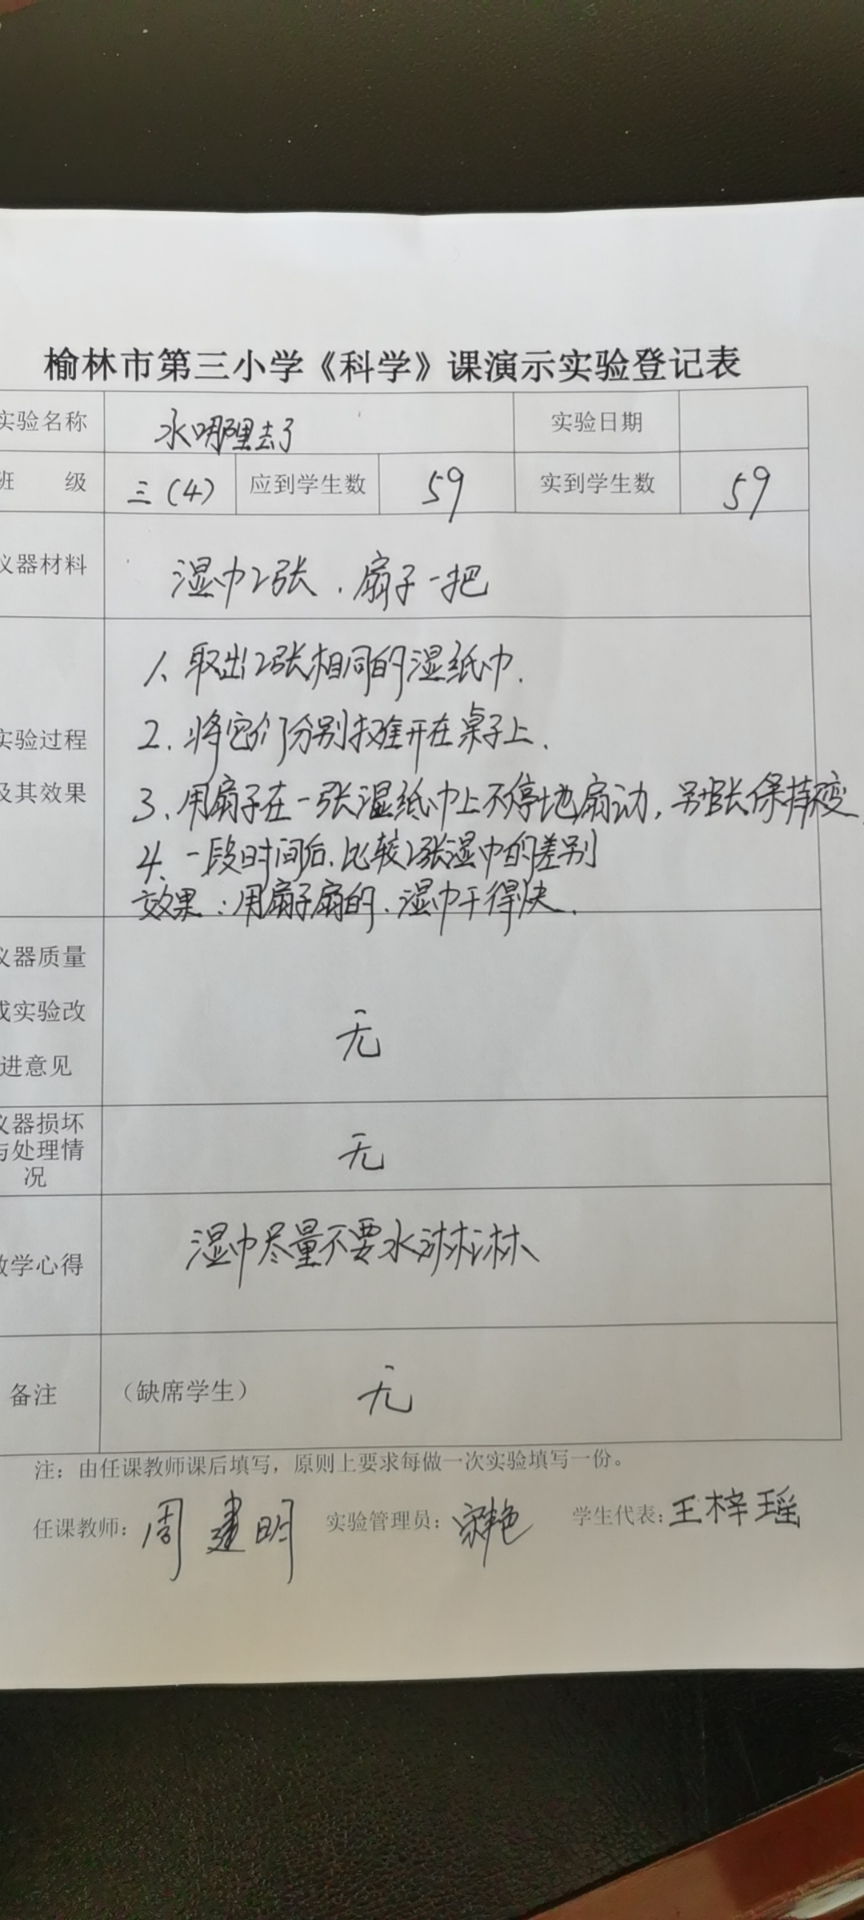 榆林市第三小学《科学》课演示实验登记表
实验名称 水哪里去了 实验日期
班 级 三（4） 应到学生数 59 实到学生数 59
仪器材料 湿巾2张、扇子一把
实验过程
及其效果
1、取出2张相同的湿纸巾.
2、将它们分别摊开在桌子上、
3、用扇子在一张湿纸巾上不停地扇动，另张保持不变
4、一段时间后、比较2张湿巾的差别
效果：用扇子扇的、湿巾干得快、
仪器质量
或实验改
进意见
无
仪器损坏
与处理情
况
无
教学心得 湿巾尽量不要水淋淋
备注 （缺席学生） 无
注：由任课教师课后填写，原则上要求每做一次实验填写一份。
任课教师：周建明 实验管理员：宋艳 学生代表：王梓瑶